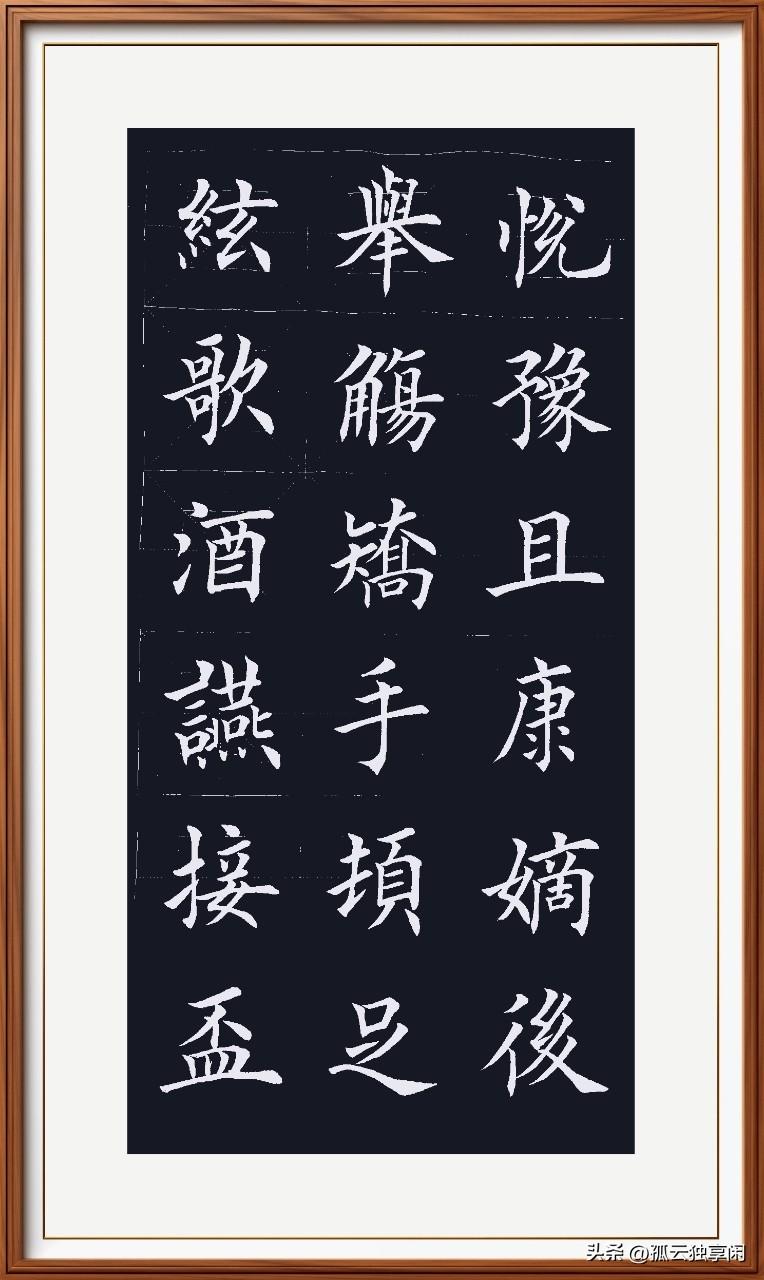 絃歌酒讌接盃
舉觴矯手頓足
悅豫且康嫡後
头条 @孤云独享闲